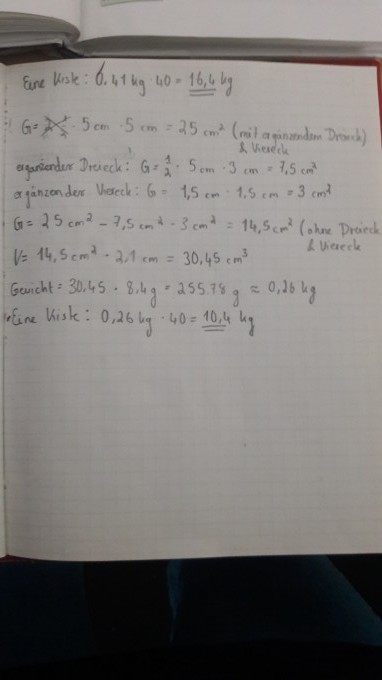 Eine Kiste: 0,41 kg · 40 = 16,4 kg
G = · 5 cm · 5 cm = 25 cm² (mit ergänzendem Dreieck)
& Viereck
ergänzender Dreieck: G = 1/2 · 5 cm · 3 cm = 7,5 cm²
ergänzender Viereck: G = 1,5 cm · 1,5 cm = 3 cm²
G = 25 cm² - 7,5 cm² - 3 cm² = 14,5 cm² (ohne Dreieck
& Viereck
V = 14,5 cm² · 2,1 cm = 30,45 cm³
Gewicht = 30,45 · 8,4 g = 255.78 g ≈ 0,26 kg
Eine Kiste: 0,26 kg · 40 = 10,4 kg